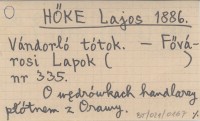 HŐKE Lajos 1886.
Vándorló tótok. – Fővá-
rosi Lapok (        )
nr 335.
O wędrówkach handlarzy
płótnem z Orawy.